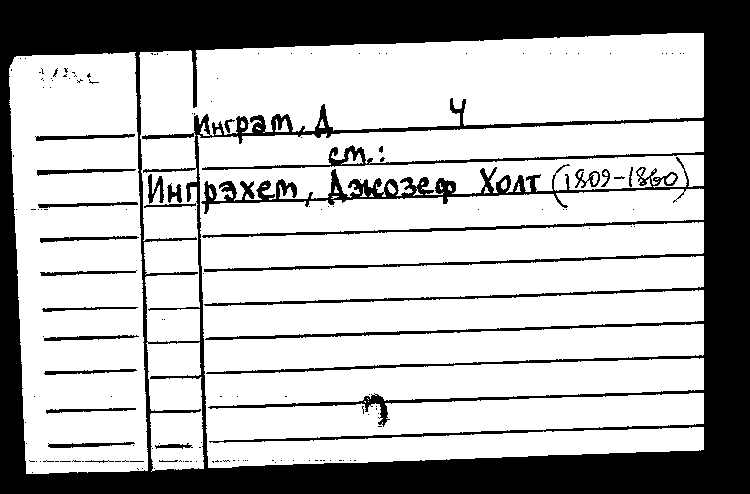 Инграм, Д 4
см.:
Ингрэхем, Джозеф Холт (1809-1860)